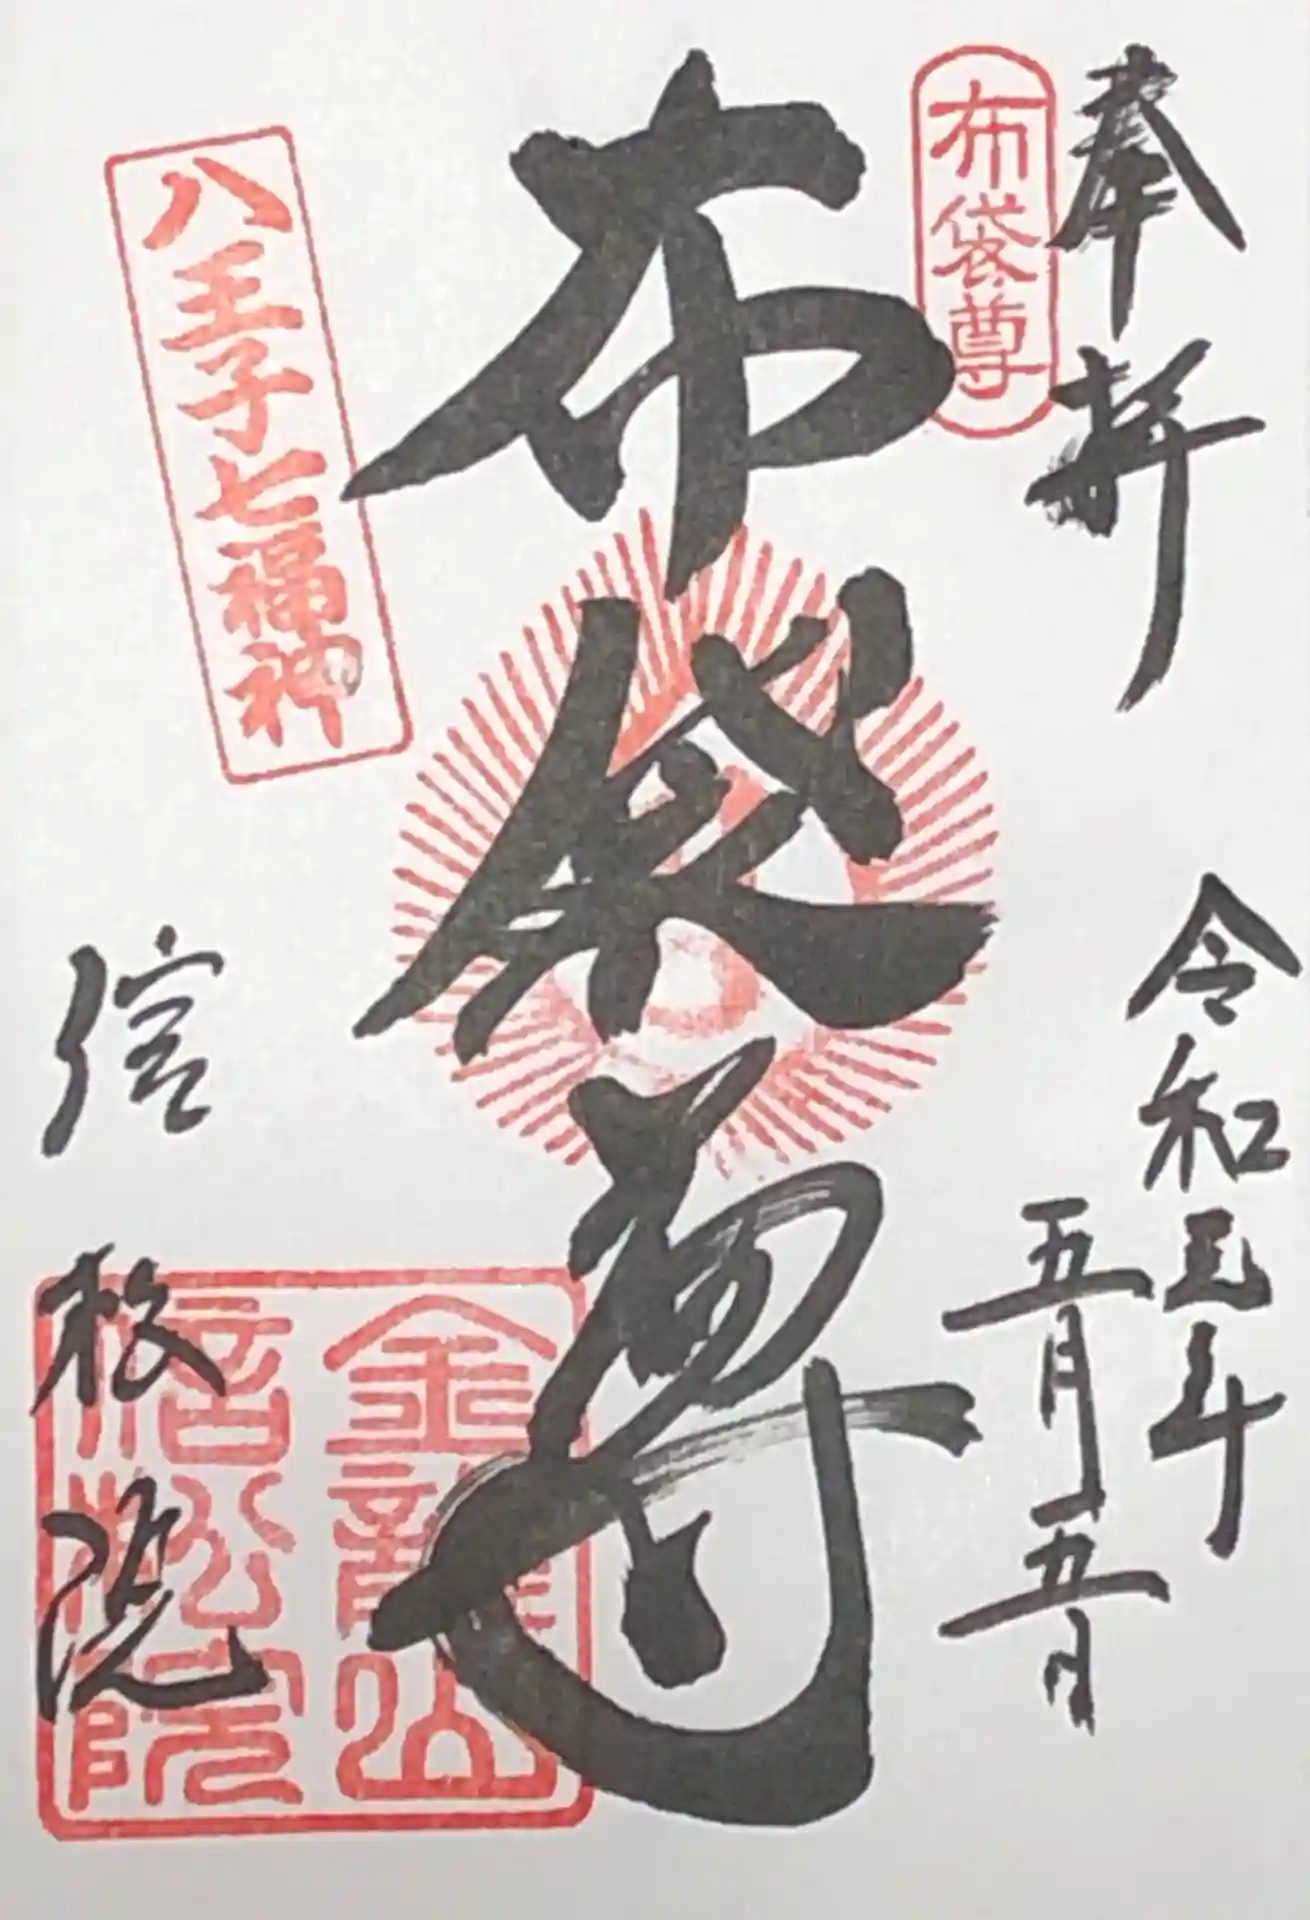 奉拝
令和三年
五月五日
布袋尊
布袋尊
八王子七福神
信松院
金龍山
信松院